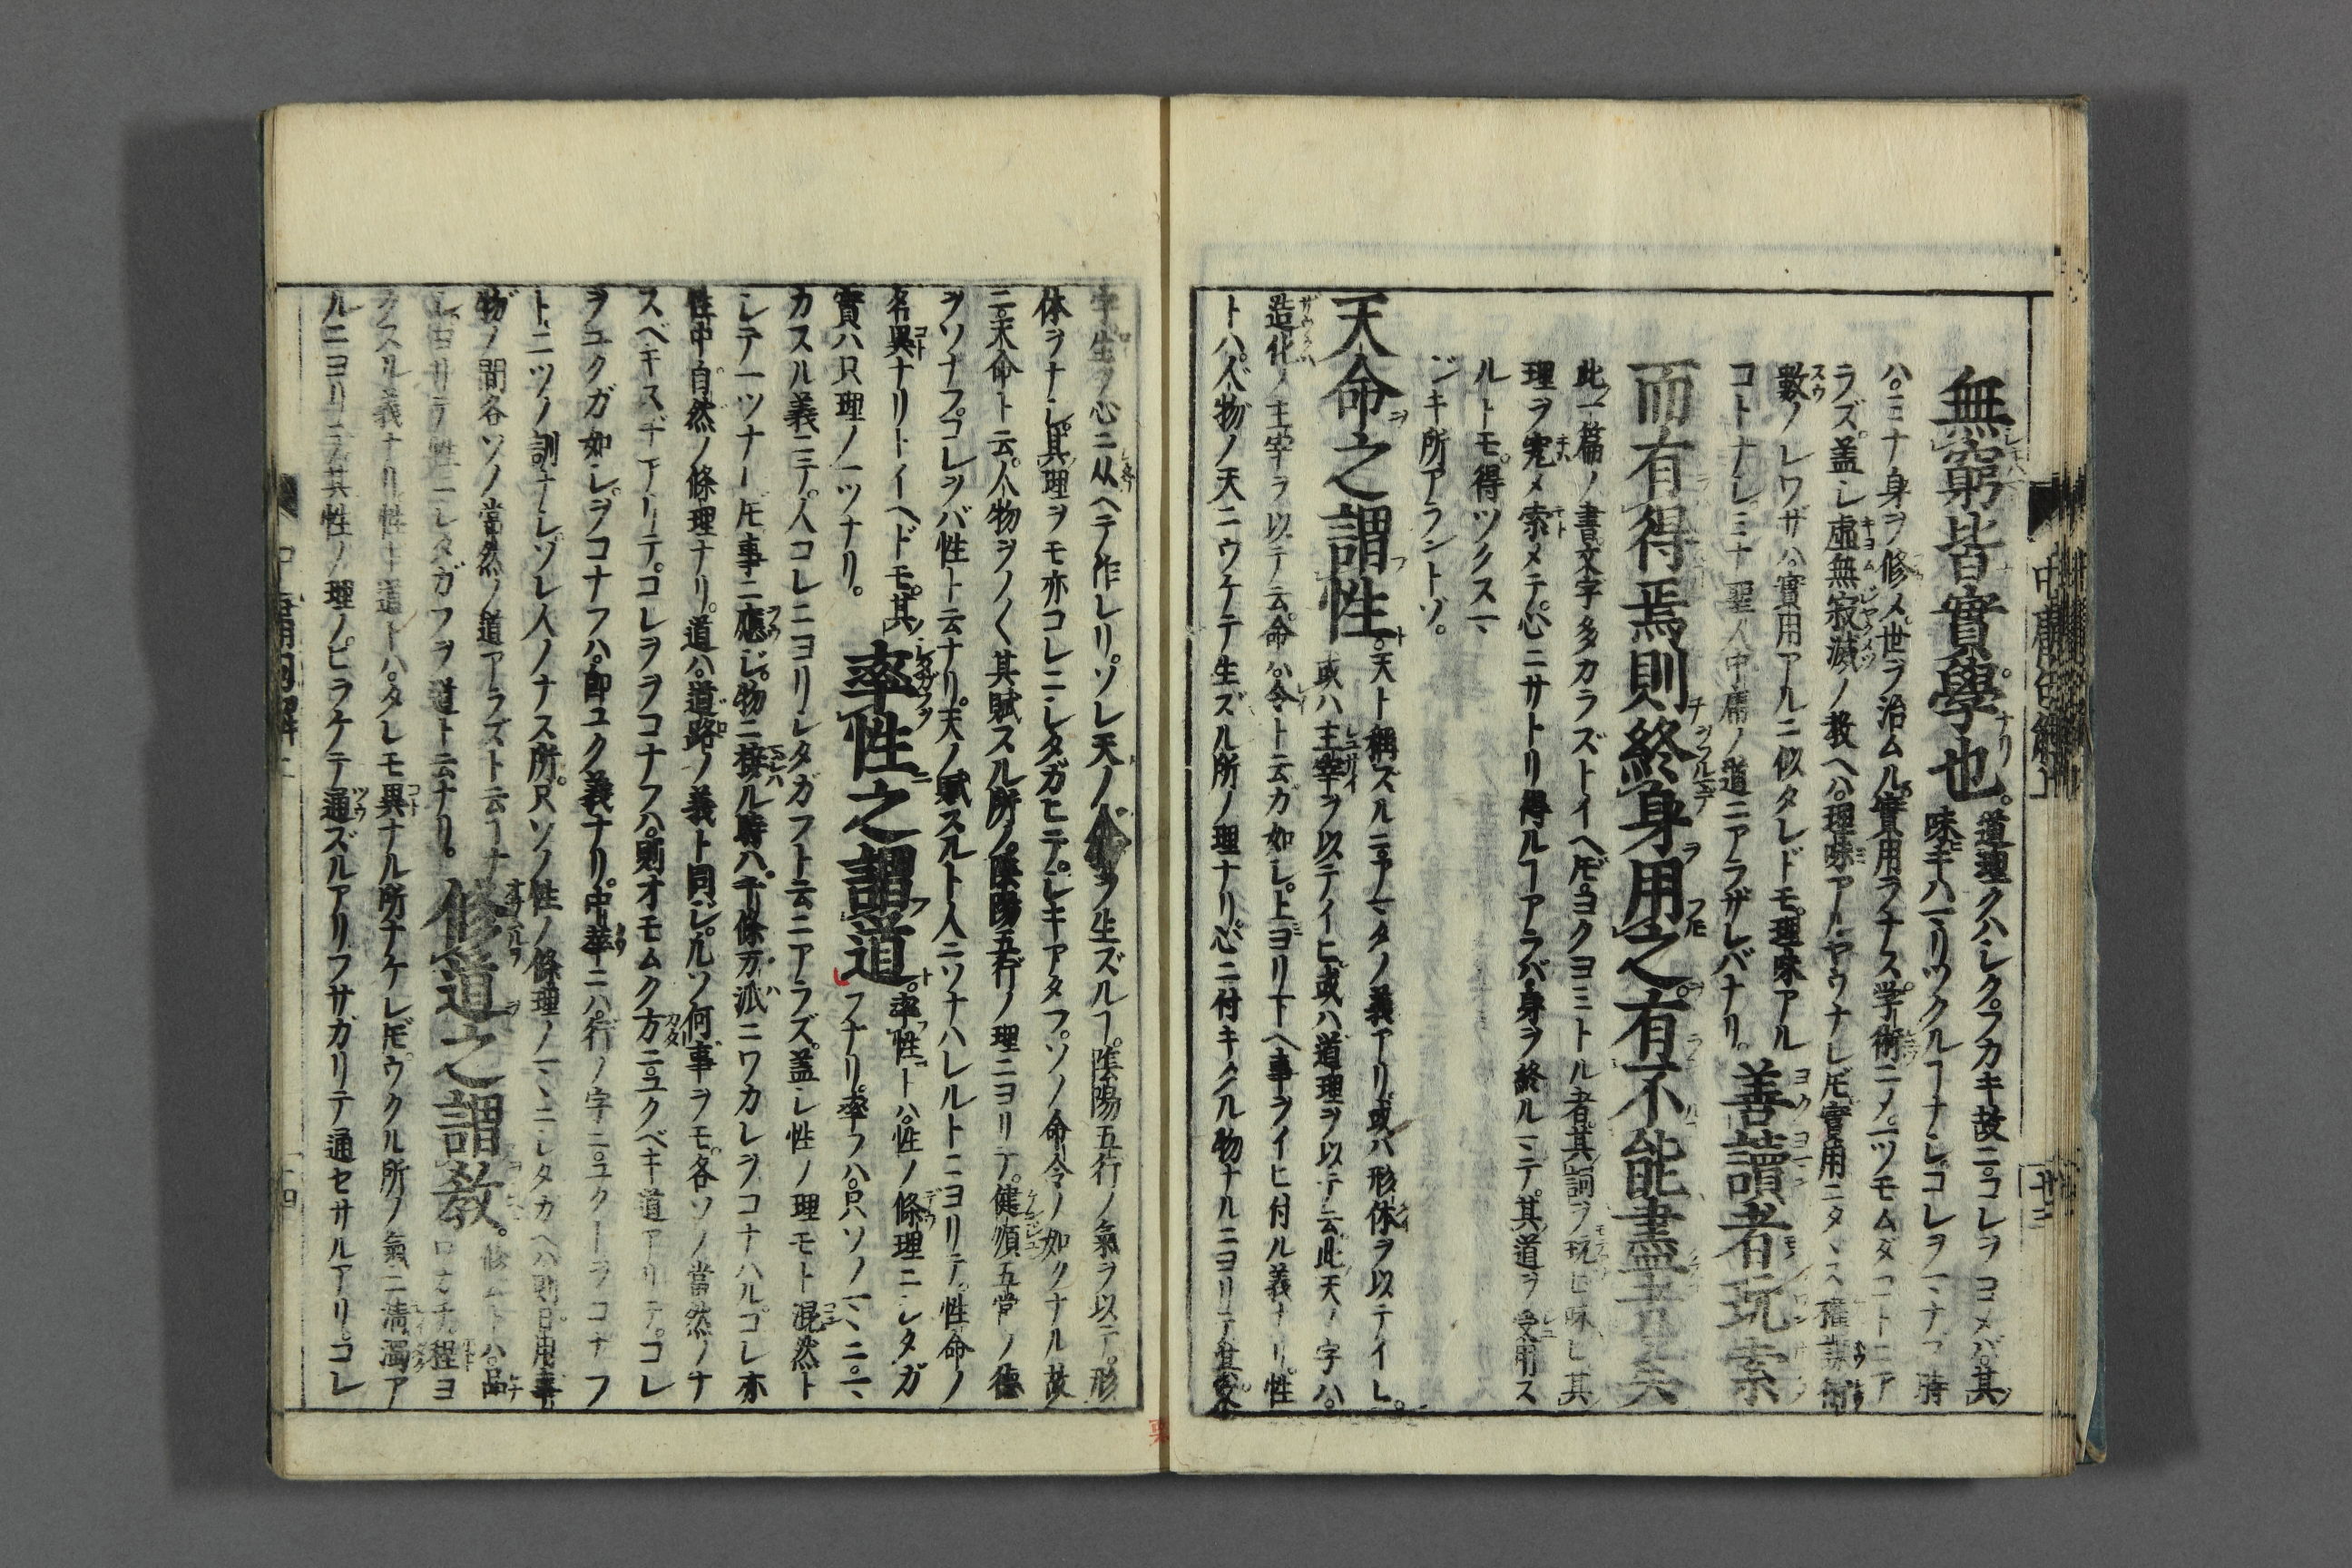 無窮皆實學也。道理クハシク。フカキ故ニ。コレヲヨメバ。其
味キハマリツクルヿナシ。コレヲマナブ時
ハ。ミナ身ヲ修メ。世ヲ治ムル。實用ヲナス学術ニメ。一ツモムダコトニア
ラズ。蓋シ虚無寂滅ノ教ヘハ。理味アルヤウナレドモ。實用ニタヽズ。權謀術
數ノシワザハ。實用アルニ似タレドモ。理味アル
コトナシ。ミナ聖人中庸ノ道ニアラザレバナリ。善讀者玩索
而有得焉則終身用之有不能盡者矣
此一篇ノ書。文字多カラズトイヘドモ。ヨクヨミトル者。其詞ヲ玩ビ味ヒ。其
理ヲ究メ索メテ。心ニサトリ得ルヿアラバ。身ヲ終ルマデ。其道ヲ受用ス
ルトモ。得ツクスマ
ジキ所アラントゾ。
天命之謂性。天ト稱ズルニ。アマタノ義アリ。或ハ形体ヲ以テイヒ。
或ハ主宰ヲ以テイヒ。或ハ道理ヲ以テ云。此天ノ字ハ。
造化ノ主宰ヲ以テ云。命ハ。令ト云ガ如シ。上ヨリ下ヘ事ヲイヒ付ル義ナリ。性
トハ。人物ノ天ニウケテ生ズル所ノ理ナリ。心ニ付キタル物ナルニヨリテ。
字生ノ心ニ从ヘテ作レリ。ソレ天ノ人物ヲ生ズルヿ。陰陽五行ノ氣ヲ以テ。形
体ヲナシ。其理ヲモ亦コレニシタガヒテ。シキアタフ。ソノ命令ノ如クナル故
ニ。天命ト云。人物ヲノ〱其賦スル所ノ。陰陽五行ノ理ニヨリテ。健順五常ノ德
ヲソナフ。コレヲバ性ト云ナリ。天ノ賦スルト人ニソナハレルトニヨリテ。性命ノ
名異ナリトイヘドモ。其
實ハ只理ノ一ツナリ。率性之謂道。率性トハ。性ノ條理ニシタガ
フナリ。率フハ。只ソノマヽニ。マヽ
カスル義ニテ。人コレニヨリシタガフト云ニアラズ。蓋シ性ノ理モト混然ト
シテ一ツナレドモ。事ニ應ジ。物ニ接ル時ハ。千條万派ニワカレヲコナハル。コレ亦
性中自然ノ條理ナリ。道ハ。道路ノ義ト同ジ。ルソ何事ヲモ。各ソノ當然ノナ
スベキスヂアリテ。コレヲヲコナフハ。則オモムク方ニ。ユクベキ道アリテ。コレ
ヲユクガ如シ。ヲコナフハ。即ユク義ナリ。中華ニハ。行ノ字ニ。ユクヿヲコナフ
ト二ツノ訓ナシ。ソレ人ノナス所。只ソノ性ノ條理ノマヽニシタカヘハ。則日用事
物ノ間。各ソノ當然ノ道アラズト云ヿナ
シ。ヨリテ性ニシタガフヲ道ト云ナリ。修道之謂教。修ムトハ。品
ロナチ。程ヨ
クスル義ナリ。性ト道トハ。タレモ異ナル所ナケレドモ。ウクル所ノ氣ニ清濁ア
ルニヨリテ。其性ノ理ノヒラケテ通ズルアリ。フサガリテ通セサルアリ。コレ